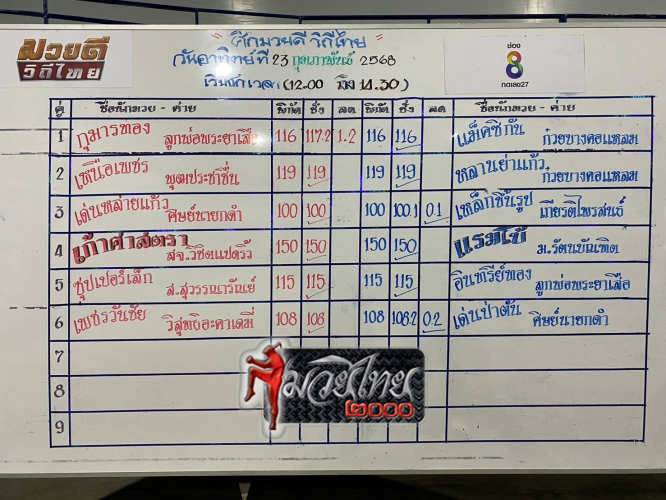 มวยดี
วิถีไทย
" ศึกมวยดี วิถีไทย "
วันอาทิตย์ที่ 23 กุมภาพันธ์ 2568
(12.00 ถึง 14.30)
ช่อง
8
กดเลข27
คู่ ชื่อนักมวย - ค่าย พิกัด ชั่ง ลด พิกัด ชั่ง ลด ชื่อนักมวย - ค่าย
1 กุมารทอง ลูกพ่อพระยาเสือ 116 117.2 1.2 116 116 แม็คซิกัน ก๋วยบางคอแหลม
2 เหนือเพชร พุฒประชาชื่น 119 119 119 119 หลานย่าแก้ว ก๋วยบางคอแหลม
3 เด่นหล่ายแก้ว ศิษย์นายกดำ 100 100 100 100.1 0.1 เหล็กขึ้นรูป เกียรติไพรสณธ์
4 เก้าศาสตรา สจ.วิชิตแปดริ้ว 150 150 150 150 แรมโบ้ ม.รัตนบัณฑิต
5 ซุปเปอร์เล็ก ส.สุวรรณภารัณย์ 115 115 115 115 อินทรีย์ทอง ลูกพ่อพระยาเสือ
6 เพชรวันชัย วิสุทธิอะคาเดมี่ 108 108 108 108.2 0.2 เด่นป่าตัน ศิษย์นายกดำ
7
8
9
มวยไทย
๒๐๐๐